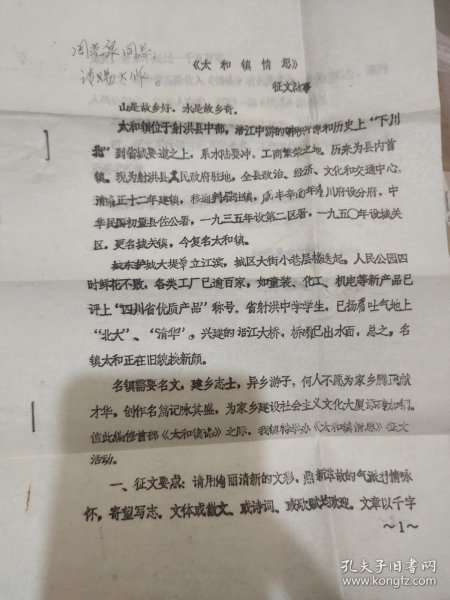 同志:
请赐大作。
《太和镇情思》
征文启事
山是故乡好,水是故乡奇。
太和镇位于射洪县中部,涪江中游的 和历史上“下川
北”到省城要道之上,系水陆要冲,工商繁荣之地,历来为县内首
镇。现为射洪县人民政府驻地,全县政治、经济、文化和交通中心。
清雍正十二年建镇,移 驻镇,咸丰辛酉年 川府设分府,中
华民国初置县佐公署,一九三五年设第二区署,一九五〇年设城关
区,更名城关镇,今复名太和镇。
城东护城大堤耸立江滨,城区大街小巷层楼迭起,人民公园四
时鲜花不败,各类工厂已逾百家,如童装、化工、机电等新产品已
评上“四川省优质产品”称号。省射洪中学学生,已扬眉吐气地上
“北大”、“清华”。兴建的涪江大桥,桥墩已出水面。总之,名
镇太和正在旧貌换新颜。
名镇需要名文,建乡志士,异乡游子,何人不愿为家乡
才华,创作名篇记咏其盛,为家乡建设社会主义文化大厦添砖加瓦。
值此编修首部《太和镇志》之际,我镇特举办《太和镇情思》征文
活动。
一、征文要点:请用绚丽清新的文彩,鼎新革故的气派抒情咏
怀,寄望写志。文体或散文、或诗词、或歌赋 欢迎。文章以千字
~1~
孔夫子旧书网
www.kongfz.com